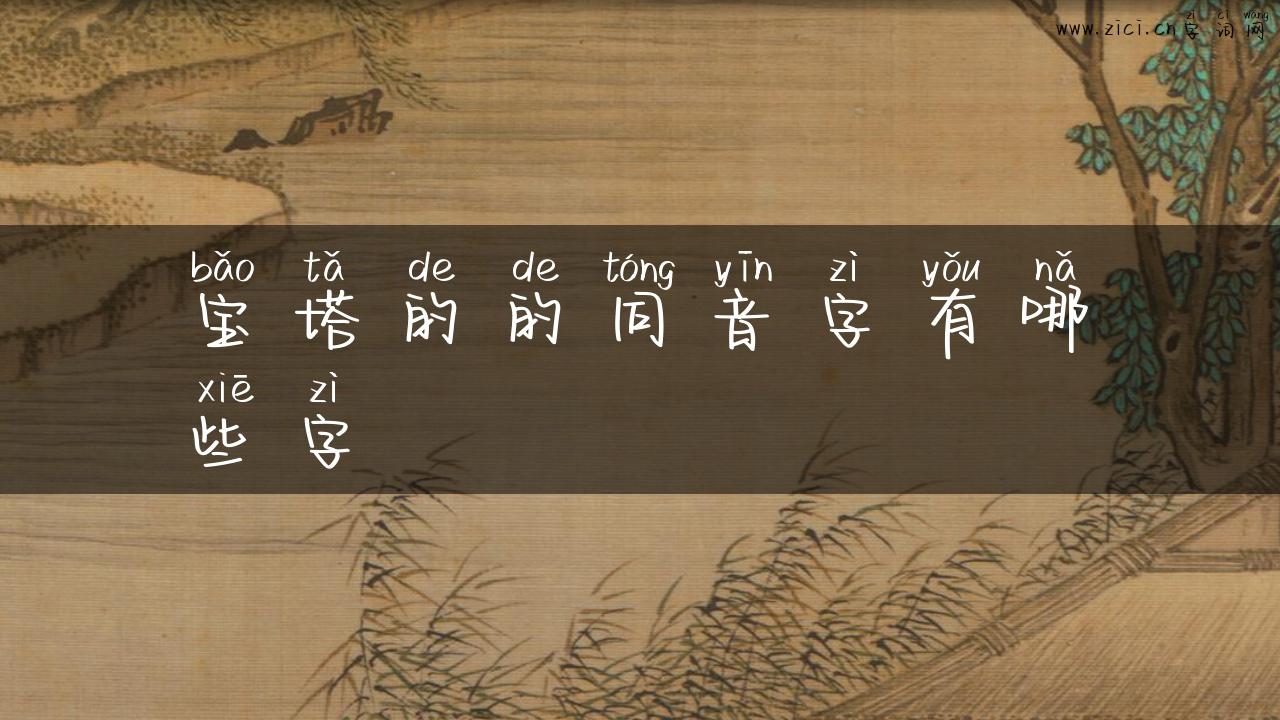 zì cí wǎng
www.zici.cn字词网
bǎo tǎ de de tóng yīn zì yǒu nǎ
宝塔的的同音字有哪
xiē zì
些字